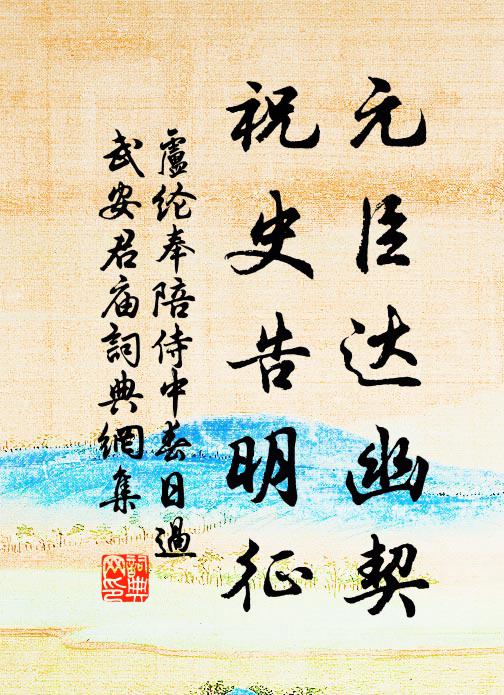 元臣达幽契
祝史告明征
盧纶奉陪侍中春日過
武安君庙詞典網集
詞典
网印